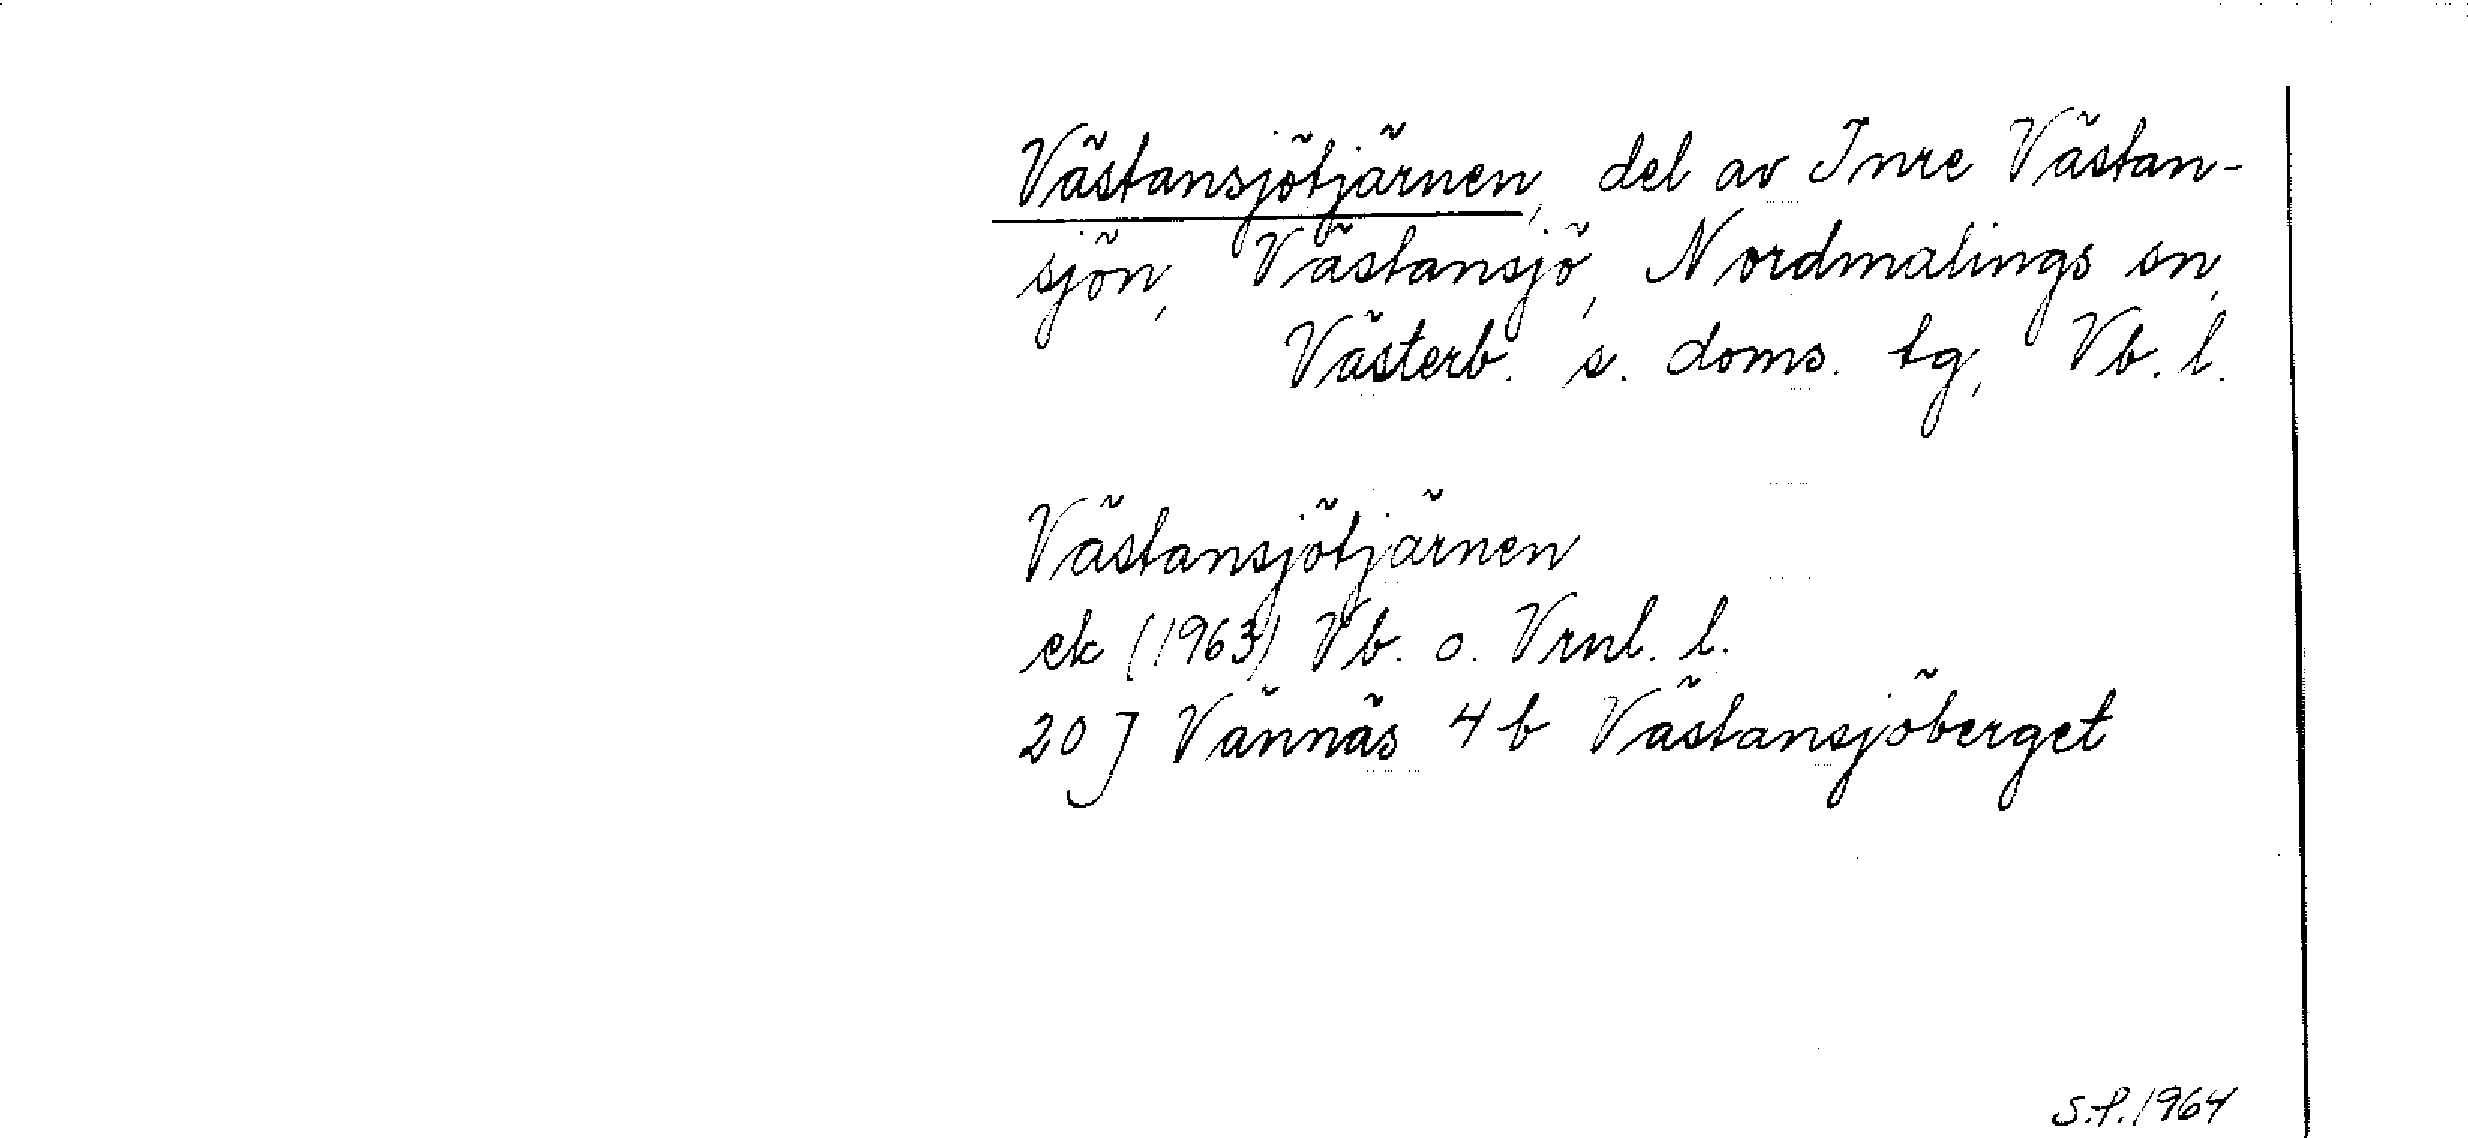 Västansjötjärnen, del av Inre Västan-
sjön, Västansjö, Nordmalings sn,
Västerb. s. doms. tg, Vb. l.
Västansjötjärnen
ek (1963) Vb. o. Vrnl. l.
20 J Vännäs 4 b Västansjöberget
S.P. 1964